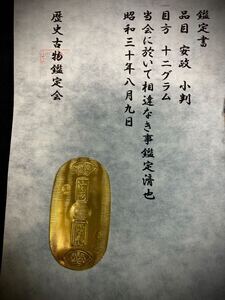 鑑定書
品目 安政 小判
目方 十二グラム
当会に於いて相違なき事鑑定済也
昭和三十年八月九日
歴史古物鑑定会